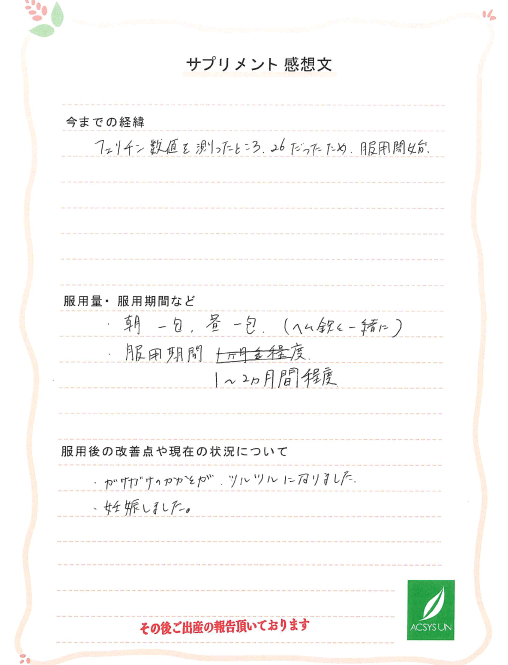 サプリメント 感想文
今までの経緯
フェリチン数値を測ったところ、26だったため、服用開始。
服用量・服用期間など
・朝 一包、昼 一包、(ヘム鉄と一緒に)
・服用期間 1ヵ月程度
1〜2ヵ月間程度
服用後の改善点や現在の状況について
・ガサガサのかかとが、ツルツルになりました。
・妊娠しました。
その後ご出産の報告頂いております
ACSYSUN